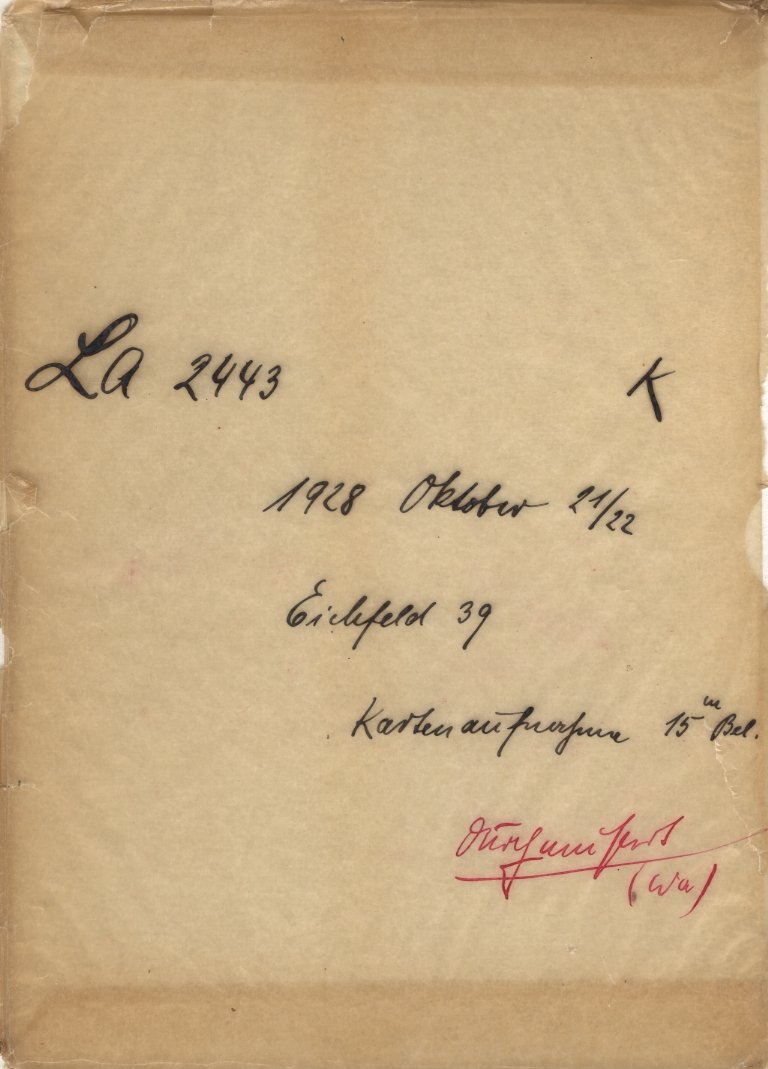 La 2443 K
1928 Oktober 21/22
Eichfeld 39
Kartenaufnahme 15m Bel.
durchmustert
(Wa)